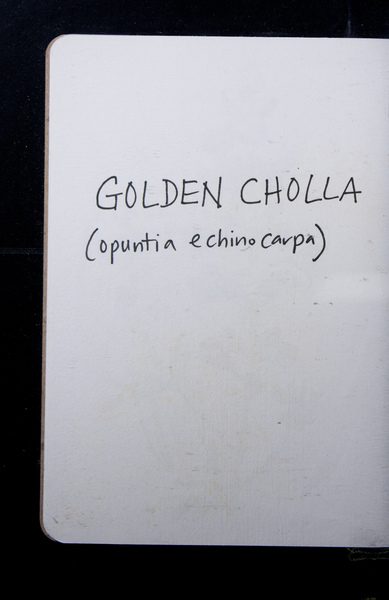 GOLDEN CHOLLA
(opuntia echinocarpa)